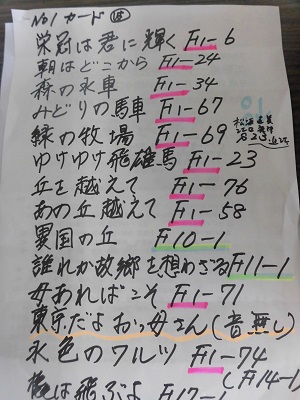 No1カード
栄冠は君に輝く F1-6
朝はどこから F1-24
森の水車 F1-34
みどりの馬車 F1-67
緑の牧場 F1-69
ゆけゆけ飛雄馬 F1-23
丘を越えて F1-76
あの丘越えて F1-58
異国の丘 F10-1
誰れか故郷を想わざる F11-1
母あればこそ F1-71
東京だよおっ母さん(音無し)
水色のワルツ F1-74
(F14-1
は飛ぶよ F17-1